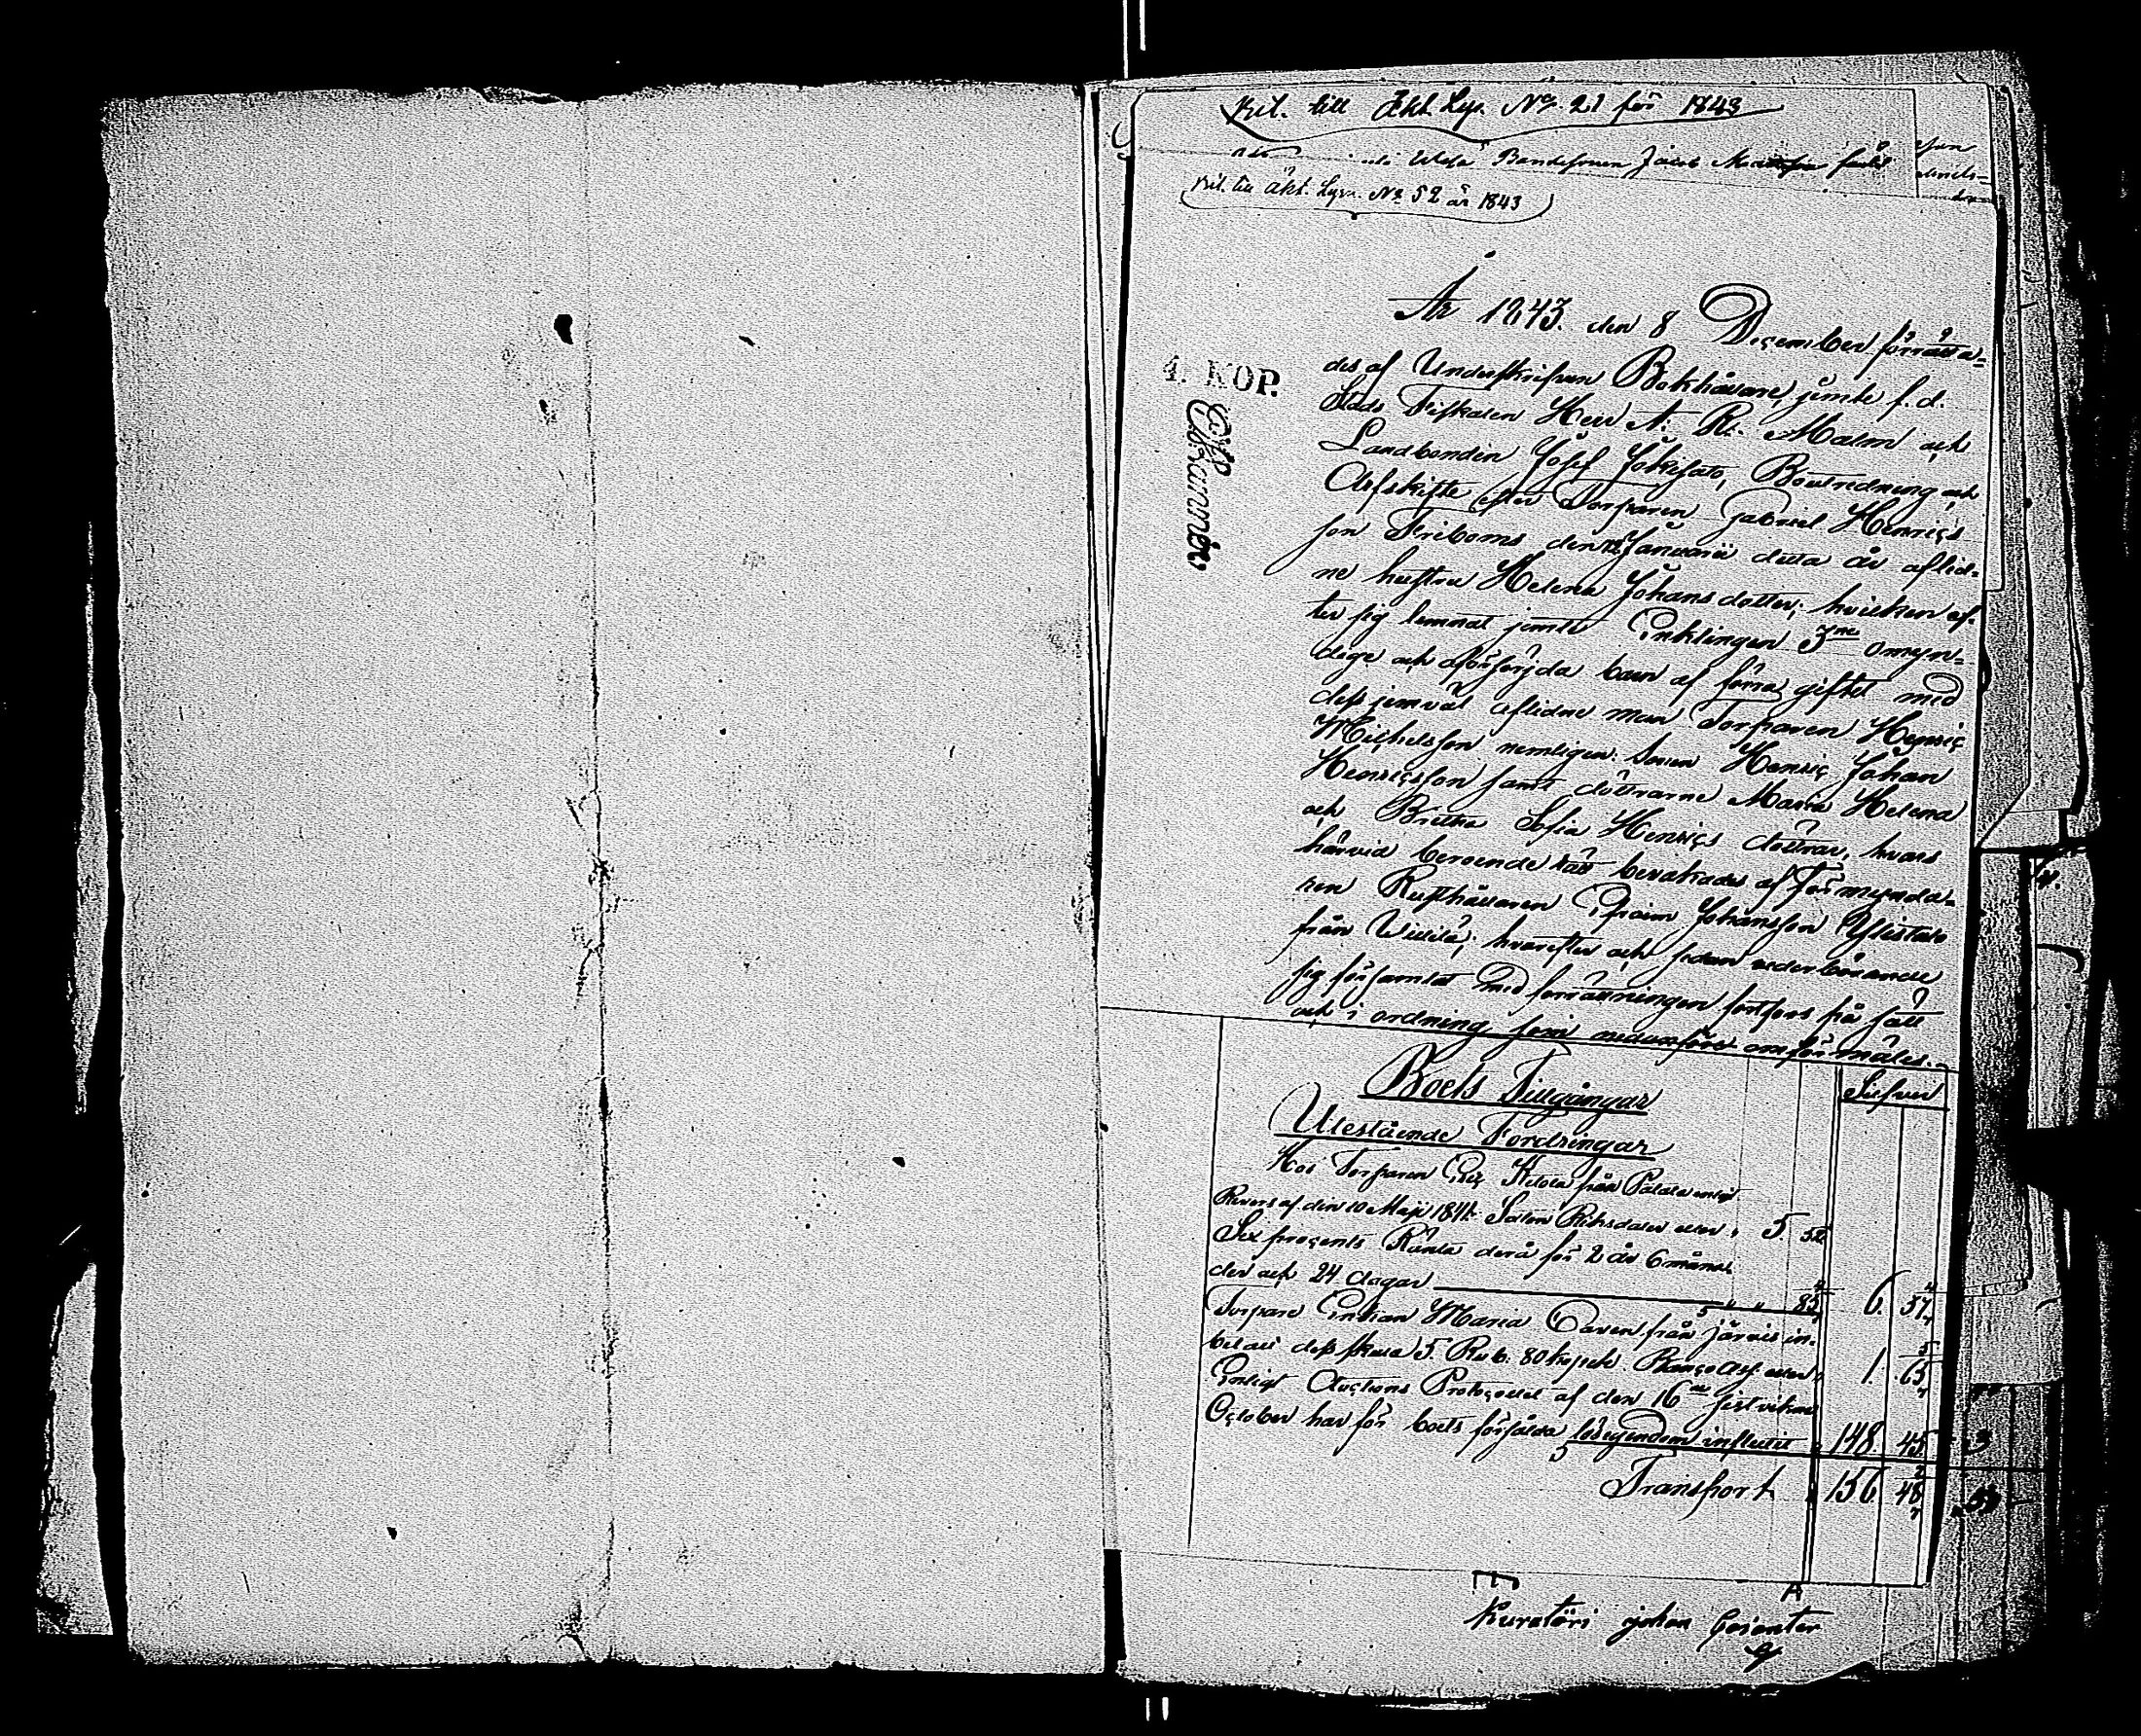 Bil. till Äkt. Lys. No. 21 för 1843
Bondesonen Jacob
Bil. till Äkt. Lysn. No. 52 år 1843
År 1843. den 8 December förrätta-
des af Underskrifven Bokhållare, jemte f. d.
Stads Fiskalen Herr A. R. Malm och
Landbonden Josef Jokisato, Boutredning och
Arfskifte efter Torparen Gabriel Henrics
son Friboms den Januarii detta år aflid-
ne hustru Helena Johansdotter, hvilken ef-
ter sig lemnat jemte Enklingen 3ne omyn-
dige och oförsörjda barn af förra giftet med
dess jemväl aflidne man Torparen Henric
Michelsson nemligen: Sonen Henric Johan
Henricsson samt döttrarne Maria Helena
och Britha Sofia Henrics döttrar, hvars
härvid beroende rätt bevakades af Förmynda-
ren Rusthållaren Efraim Johansson Ylistalo
från hvarefter och sedan vederbörande
sig församlat med förrättningen fortfors på sätt
och i ordning som nedanföre omförmäles.
4. KOP.
Boets Tillgångar
Silfver
Utestående Fordringar
Hos Torparen från enligt
Revers af den 10 Maji 1841. Riksdaler eller 5. 52
Sex procents Ränta derå för 2 år 6 måna-
der och 24 dagar 6. 37
Torpare Enkan Maria från
betalt dess skuld 5. Rub. 80 kopek Banco Ass. eller 1. 65
Enligt Auctions Protocollet af den 16de sistvikne
October har för boets försålda lösegendom influtit 148 45
Transport 156 48
Kuratöri Johan